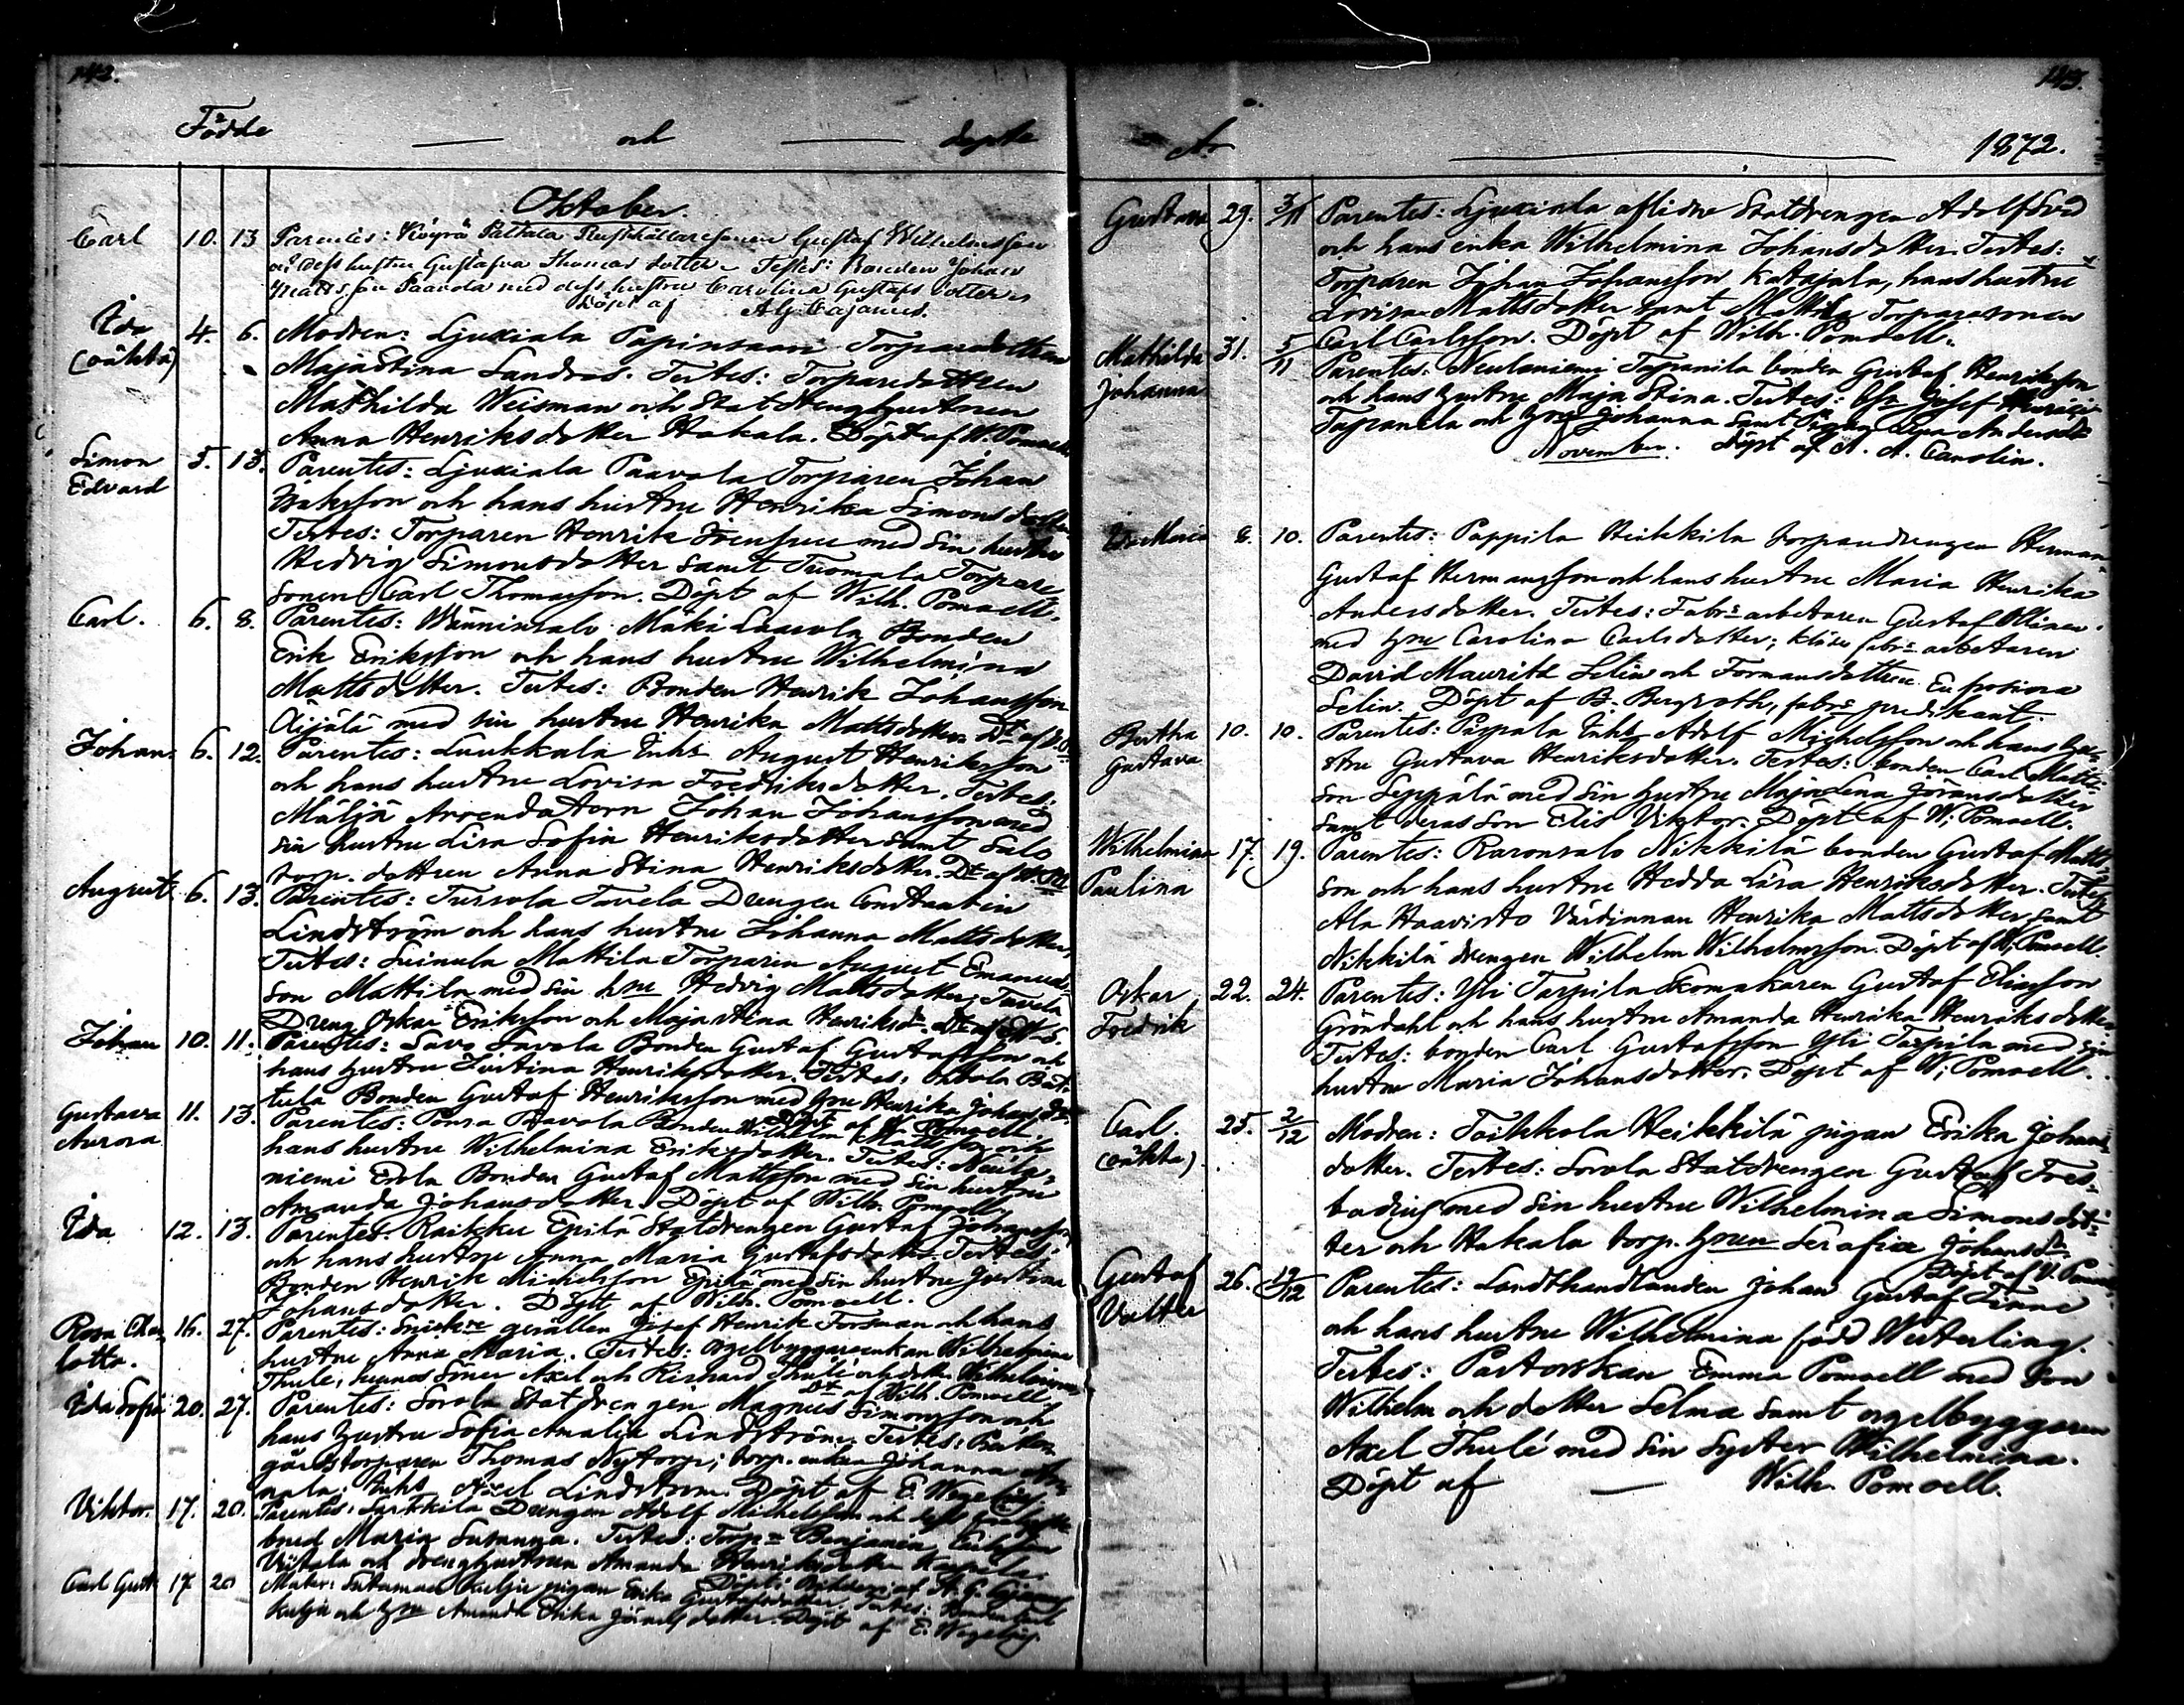 142.
Födde — och — döpte
Oktober.
Carl 10. 13 Parentes: Köyrä Pättälä Rusthållaresonen Gustaf Wilhelmsson
och dess hustru Gustafva Thomas dotter. Testes: Bonden Johan
Matts son Paavola med dess hustru Carolina Gustafs dotter
Döpt af Alg. Cajanus.
Ida 4. 6. Modren: Ljuxiala Papinsaari Torparedottren
(oäkta) Maja Stina Sandros. Testes: Torparedottren
Mathilda Weisman och Statdrenghustrun
Anna Henriksdotter Hakala. Döpt af W. Pomoell.
Simon 5. 13. Parentes: Ljuxiala Paavola Torparen Johan
Edvard Isaksson och hans hustru Henrika Simonsdotter.
Testes: Torparen Henrik Jöensuu med sin hustru
Hedvig Simonsdotter samt Tuomala Torpare-
sonen Carl Thomasson. Döpt af Wilh. Pomoell.
Carl. 6. 8. Parentes: Wänninsalo Mäki Laurola Bonden
Erik Eriksson och hans hustru Wilhelmina
Mattsdotter. Testes: Bonden Henrik Johansson
Äijälä med sin hustru Henrika Mattsdotter.
Johan 6. 12. Parentes: Luukkala Inhs August Henriksson
och hans hustru Lovisa Fredriksdotter. Testes:
Mäljä Arrendatorn Johan Johansson med
sin hustru Lisa Sofia Henriksdotter samt Salo
torp. dottren Anna Stina Henriksdotter.
August 6. 13. Parentes: Tursola Tavela Drengen Constantin
Lindström och hans hustru Johanna Mattsdotter,
Testes: Suinula Mattila Torparen August Emanuels-
son Mattila med sin hru Hedvig Mattsdotter; Tavela
Dreng Oskar Eriksson och Maja Stina Henriksdr
Johan 10. 11. Parentes: Savo Savola Bonden Gustaf Gustafsson och
hans hustru Justina Henriksdotter. Testes:
tula Bonden Gustaf Henriksson med hru Henrika Johans dr.
Döpt af W. Pomoell.
Gustava 11. 13. Parentes: Ponsa Paavola Bonden Wilhelm Mattsson och
Aurora hans hustru Wilhelmina Eriksdotter. Testes: Neula-
niemi Erola Bonden Gustaf Mattsson med sin hustru
Amanda Johansdotter. Döpt af Wilh. Pomoell
Ida 12. 13. Parentes: Raikku Epilä Statdrengen Gustaf Johansson,
och hans hustru Anna Maria Gustafsdotter. Testes:
Bonden Henrik Michelsson Epilä med sin hustru Justina
Johansdotter. Döpt af Wilh. Pomoell.
Rosa Char- 16. 27. Parentes: Snickre gesällen Josef Henrik Forsman och hans
lotta. hustru Anna Maria. Testes: orgelbyggareenkan Wilhelmina
Thulé, hennes söner Axel och Richard Thulé och dotter Wilhelmina
Dt af Wilh. Pomoell.
Ida Sofia 20. 27. Parentes: Sorola Statdrengen Magnus Simonsson och
hans hustru Sofia Amalia Lindström. Testes:
gårdstorparen Thomas Nytorp; torp. enkan Johanna
Inhs Axel Lindström. Döpt af E. Wegelius.
Viktor. 17. 20. Parentes: Drengen Adolf Michelsson och dess
Maria Susanna. Testes: Torp. Benjamin
och drenghustrun Amanda Henriksdotter
Döpt
Carl Gust 17 20 Mater: pigan Erika Gustafsdotter. Testes: Bonden
och hru Amanda Erika dotter. Döpt af E. Wegelius
143.
År — 1872.
Gustava 29. 3/11 Parentes: Ljuxiala aflidne Statdrengen Adolf
och hans enka Wilhelmina Johansdotter. Testes:
Torparen Johan Johansson Katajala, hans hustru
Lovisa Mattsdotter samt Mattila Torparesonen
Carl Carlsson. Döpt af Wilh. Pomoell.
Mathilda 31. 5/11 Parentes: Neulaniemi Tapanila bonden Gustaf Henriksson
Johanna och hans hustru Maja Stina. Testes: Josef
Tapanila och hru Johanna samt
Döpt af A. A. Carolin.
November.
Ida Maria 8. 10. Parentes: Pappila Heikkilä torparedrengen Herman
Gustaf Hermansson och hans hustru Maria Henrika
Andersdotter. Testes: Fabrs arbetaren Gustaf Ollinen
med hru Carolina Carlsdotter; fabrs arbetaren
David Mauritz Selin och Formansdottren Eufrosina
Selin. Döpt af B. Bergroth, fabrs predikant.
Bertha 10. 10. Parentes: Pappala Inhs Adolf Michelsson och hans hu-
Gustava stru Gustava Henriksdotter. Testes: bonden Carl Matts-
son Seppälä med sin hustru Maja Lena Göransdotter
samt deras son Elis Viktor. Döpt af W. Pomoell.
Wilhelmina 17. 19. Parentes: Raronsalo Nikkilä bonden Gustaf Matts-
Paulina son och hans hustru Hedda Lisa Henriksdotter. Testes
Ala Haavisto Värdinnan Henrika Mattsdotter samt
Nikkilä drengen Wilhelm Wilhelmsson. Döpt af W. Pomoell.
Oskar 22. 24. Parentes: Yli Tarpila Skomakaren Gustaf Eliasson
Fredrik Gröndahl och hans hustru Amanda Henrika Henriksdotter
Testes: bonden Carl Gustafsson Yli Tarpila med sin
hustru Maria Johansdotter. Döpt af W. Pomoell.
Carl. 25. 2/12 Modren: Toikkola Heikkilä pigan Erika Johans
(oäkta) dotter. Testes: Sorola Statdrengen Gustaf Fors-
bading med sin hustru Wilhelmina Simonsdot-
ter och Hakala torp. hrun Serafia Johansdr
Döpt af W. Pomoell.
Gustaf 26. 19/12 Parentes: Landthandlanden Johan Gustaf Finne
Valter och hans hustru Wilhelmina född Westerling.
Testes: Pastorskan Emma Pomoell med son
Wilhelm och dotter Selma samt orgelbyggaren
Axel Thulé med sin syster Wilhelmina.
Döpt af — Wilh. Pomoell.